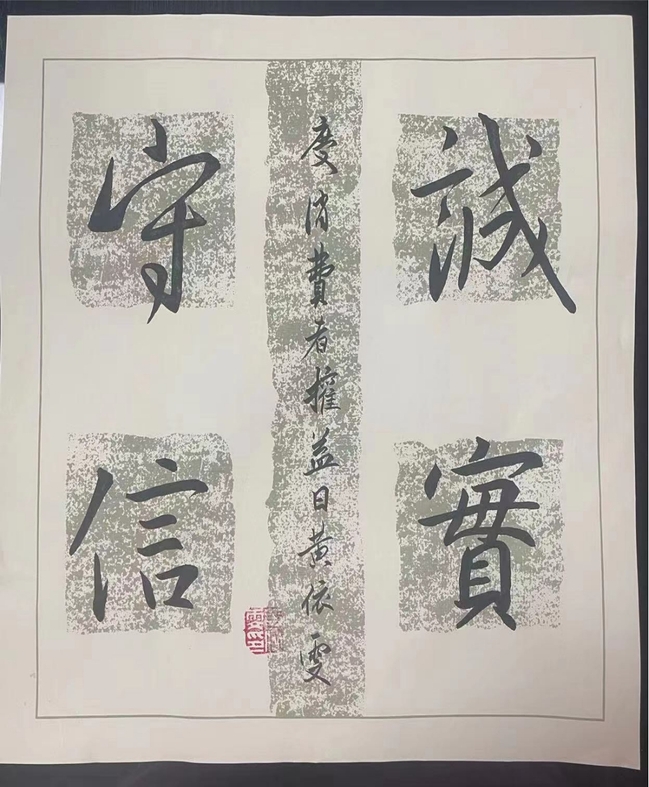 誠實
守信
度消費者權益日黃依雯